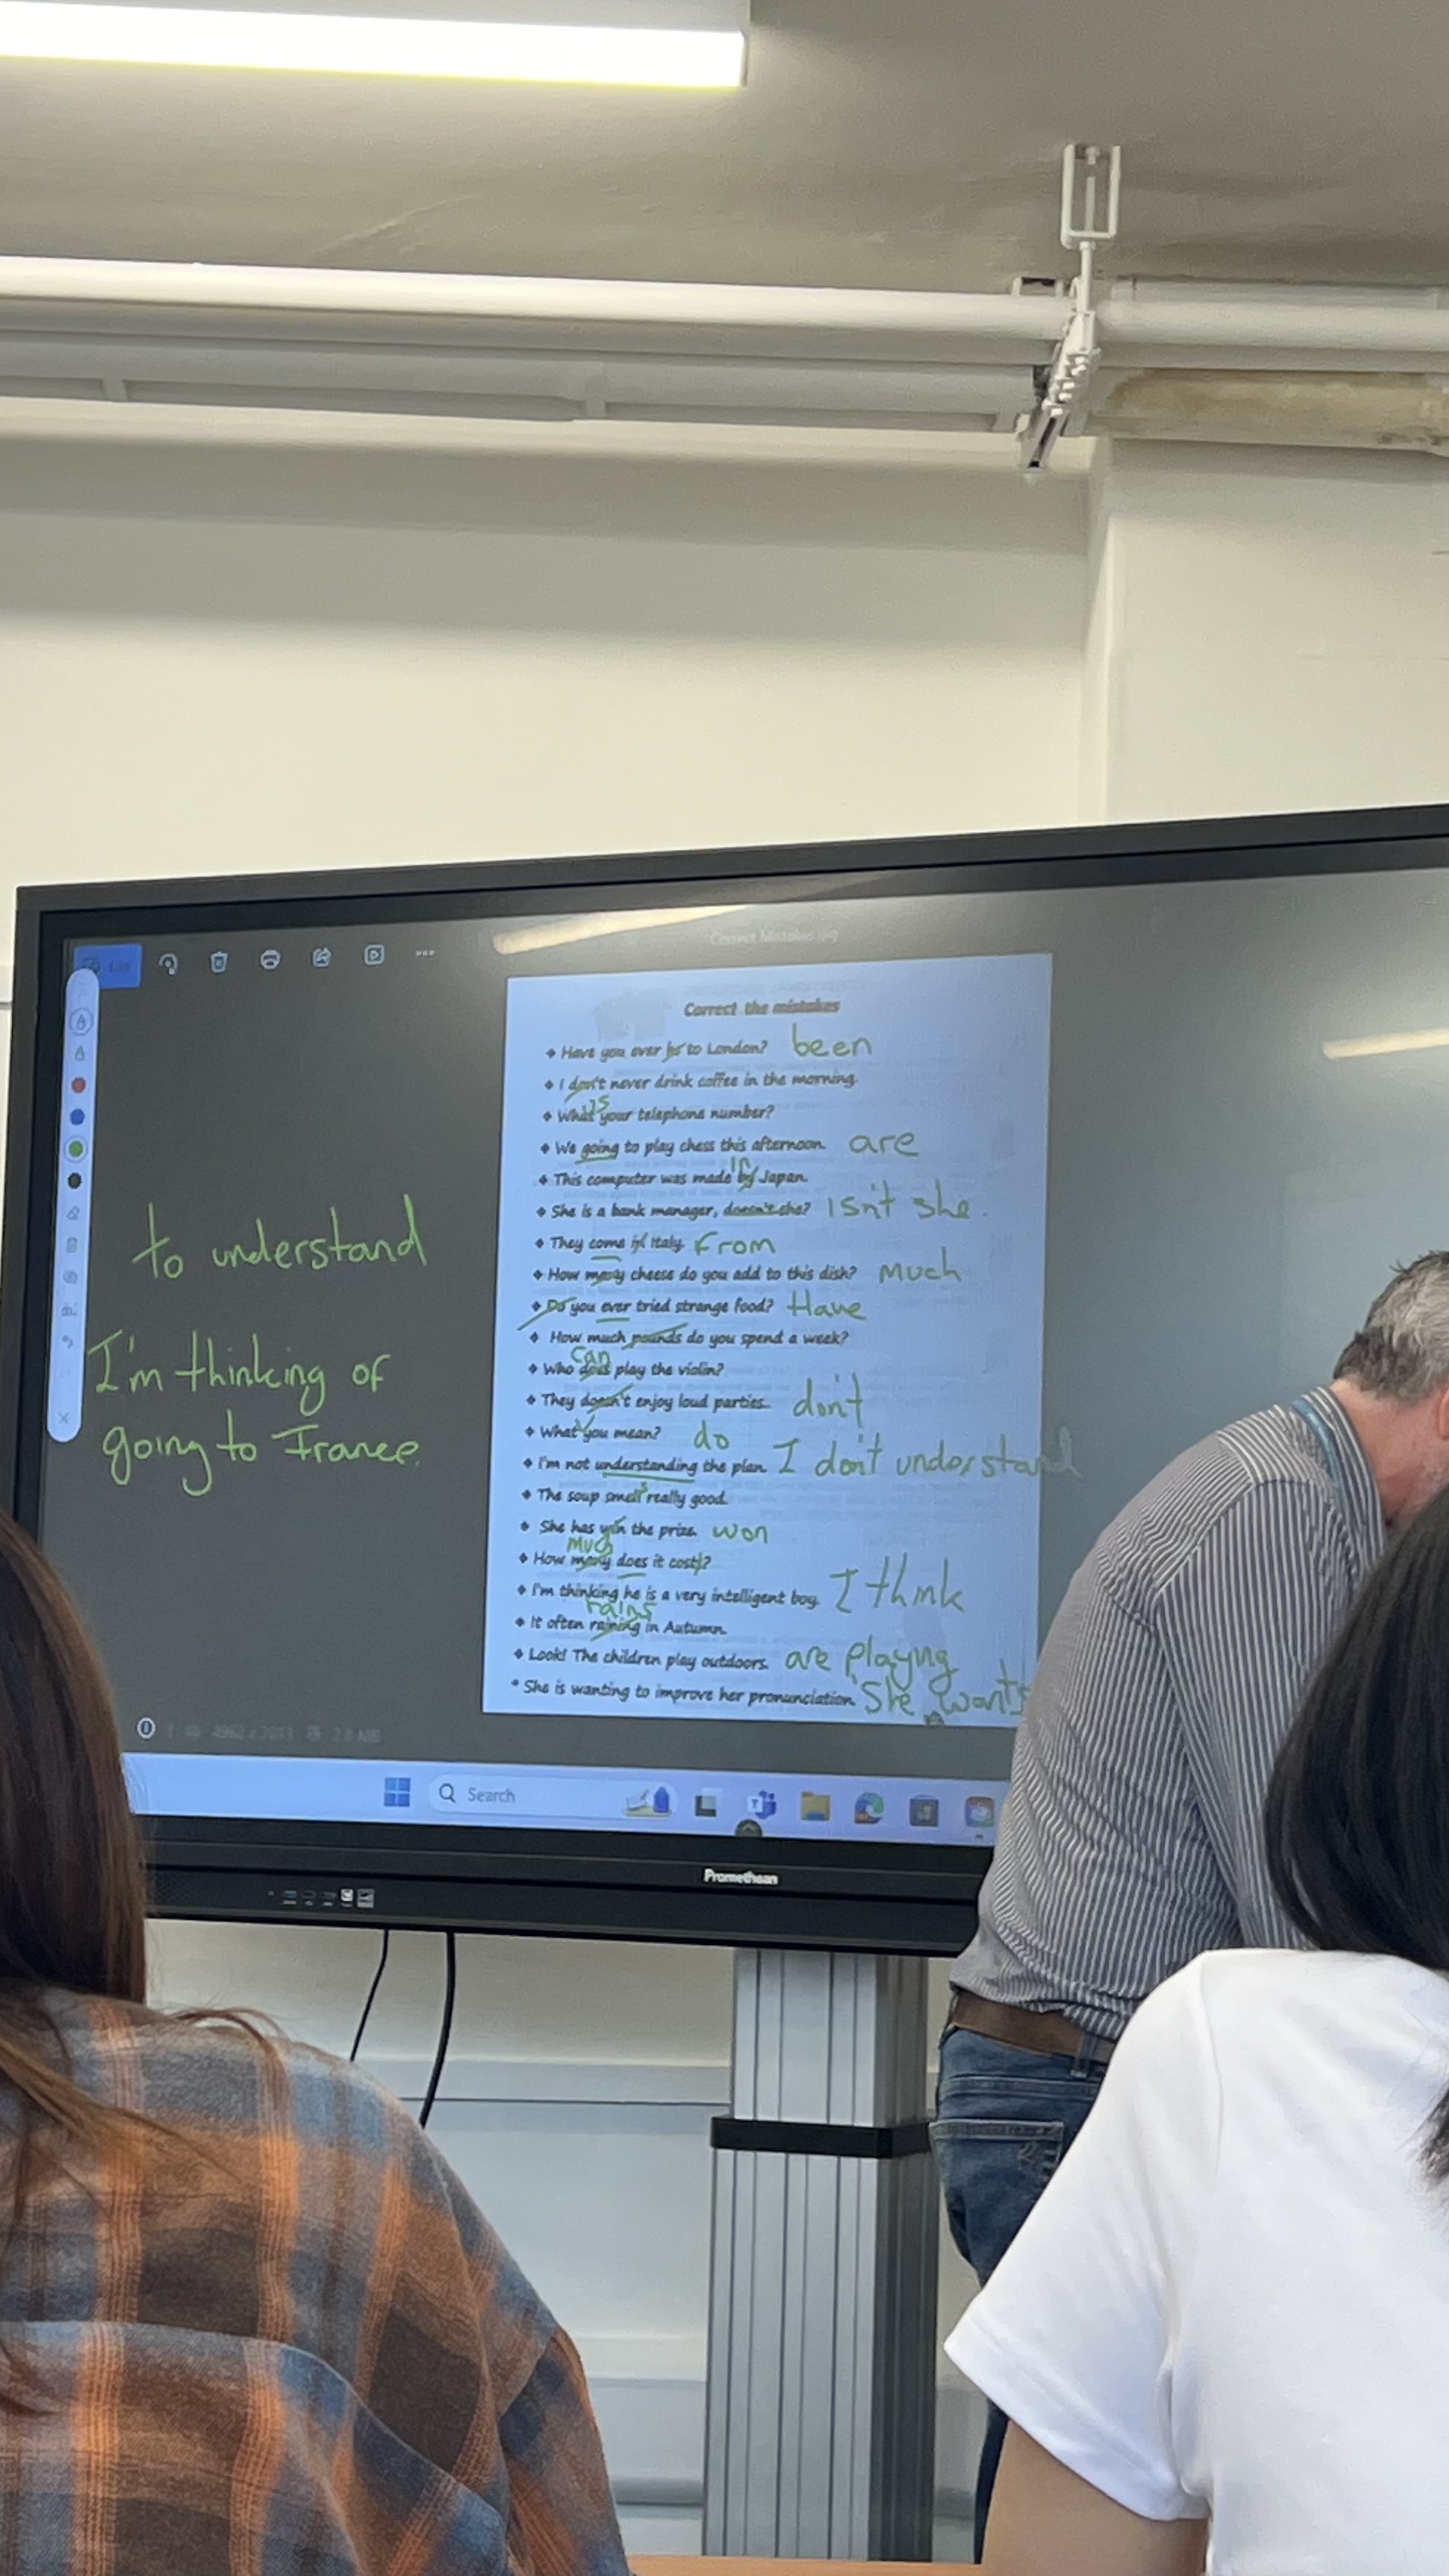 Correct Mistakes.jpg
Edit
Correct the mistakes
❖ Have you ever be to London? been
❖ I don't never drink coffee in the morning.
is
❖ What your telephone number?
❖ We going to play chess this afternoon. are
in
❖ This computer was made by Japan.
❖ She is a bank manager, doesn't she? isn't she.
❖ They come in Italy. From
❖ How many cheese do you add to this dish? much
❖ Do you ever tried strange food? Have
❖ How much pounds do you spend a week?
can
❖ Who does play the violin?
❖ They doesn't enjoy loud parties. don't
❖ What you mean? do
❖ I'm not understanding the plan. I don't understand
s
❖ The soup smell really good.
❖ She has win the prize. won
much
❖ How many does it costs?
❖ I'm thinking he is a very intelligent boy. I think
rains
❖ It often raining in Autumn.
❖ Look! The children play outdoors. are playing
* She is wanting to improve her pronunciation. She wants
to understand
I'm thinking of
going to France.
Search
Promethean